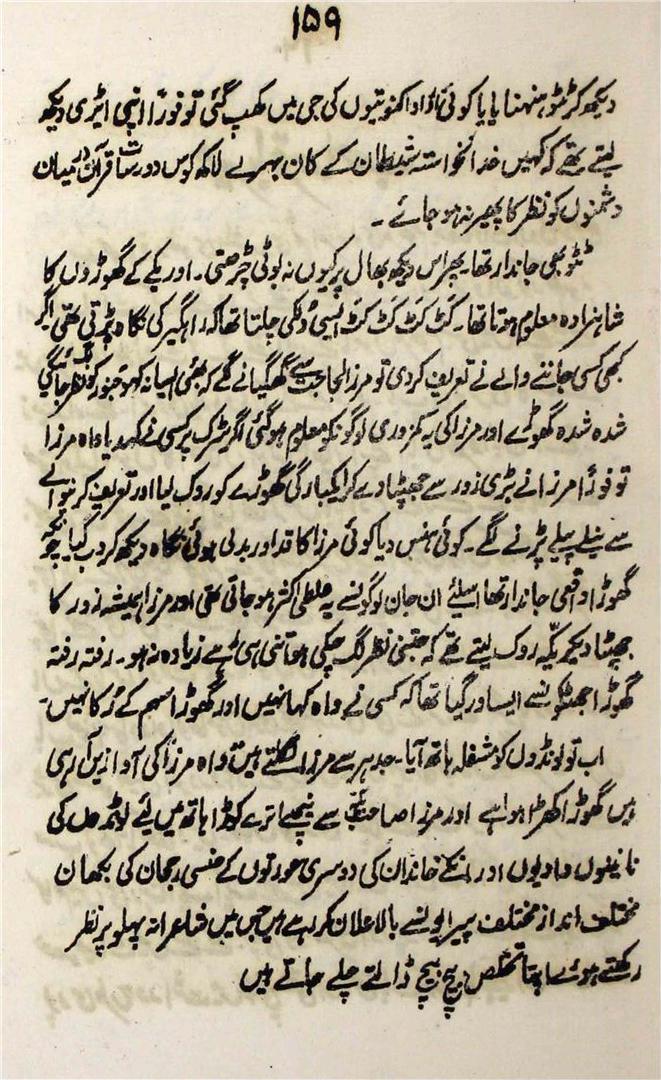 ۱۵۹
دیکھ کر ٹٹو ہنہنایا یا کوئی اڑاوا کنوتیوں کی جی میں کھب گئی تو فوراً اپنی ایڑی دیکھ
لیتے تھے کہ کہیں خدانخواستہ شیطان کے کان بہرے لاکھ کوس دور سات قرآن درمیان
دشمنوں کو نظر کا پھیر نہ ہو جائے ۔
ٹٹو بھی جاندار تھا۔ پھر اس دیکھ بھال پر کیوں نہ بوٹی چڑھتی۔ اور یکے کے گھوڑوں کا
شاہزادہ معلوم ہوتا تھا۔ کَٹ کَٹ کَٹ کَٹ ایسی دُلکی چلتا تھا کہ راہگیر کی نگاہ پڑتی تھی اگر
کبھی کسی جاننے والے نے تعریف کر دی تو مرزا لجاجت سے گھگیانے لگے کہ بھئی ایسا نہ کہو جنور کو نظر لگ جائیگی
شدہ شدہ گھوڑے اور مرزا کی یہ کمزوری لوگونکو معلوم ہو گئی اگر سڑک پر کسی نے کہدیا واہ مرزا
تو فوراً مرزا نے بڑی زور سے جھپٹا دے کر ایکبارگی گھوڑے کو روک لیا اور تعریف کرنیوالے
سے نیلے پیلے پڑنے لگے۔ کوئی ہنس دیا کوئی مرزا کا قد اور بدلی ہوئی نگاہ دیکھ کر دب گیا چونکہ
گھوڑا واقعی جاندار تھا اسلیئے ان جان لوگوں سے یہ غلطی اکثر ہو جاتی تھی اور مرزا ہمیشہ زور کا
جھپٹا دیکر یکّہ روک لیتے تھے کہ جتنی نظر لگ چکی ہو اتنی ہی رہے زیادہ نہ ہو۔ رفتہ رفتہ
گھوڑا جھٹکوں سے ایسا ور گیا تھا کہ کسی نے واہ کہا نہیں اور گھوڑا سہم کے رُکا نہیں۔
اب تو لونڈوں کو مشغلہ ہاتھ آیا۔ جدہر سے مرزا نکلتے ہیں واہ مرزا کی آوازیں آ رہی
ہیں گھوڑا کھڑا ہوا ہے اور مرزا صاحب یکّے سے نیچے اترے کوڑا ہاتھ میں لیئے لونڈوں کی
نانیوں دادیوں اور انکے خاندان کی دوسری عورتوں کے جنسی رجحان کی بکھان
مختلف انداز مختلف پیرایوں سے بالاعلان کر رہے ہیں جس میں شاعرانہ پہلو پر نظر
رکھتے ہوئے اپنا تخلص بیچ بیچ ڈالتے چلے جاتے ہیں